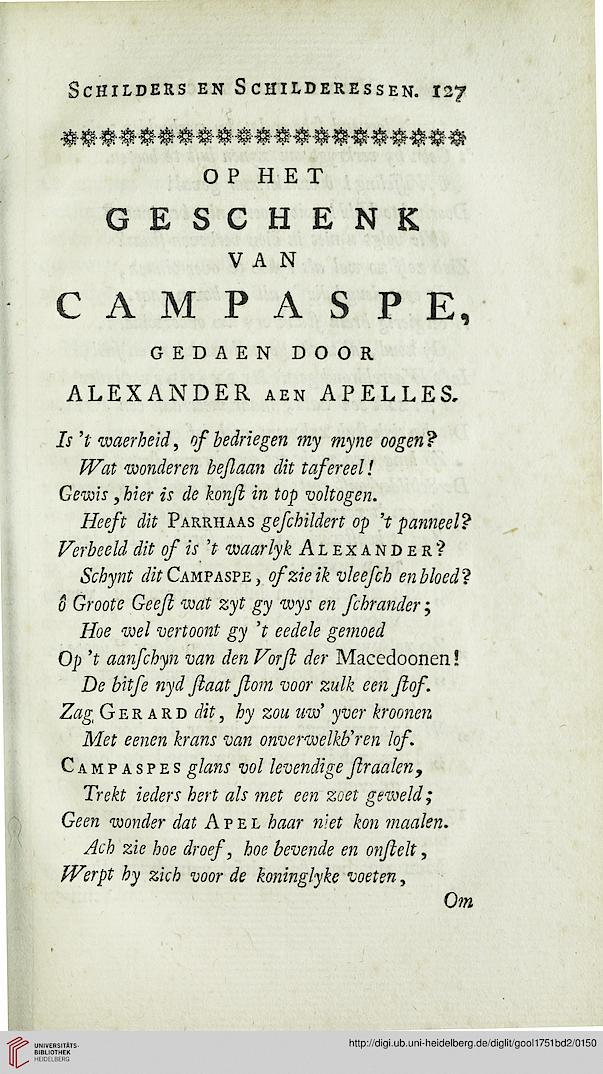 SCHILDERS EN SCHILDERESSEN. 127
OP HET
GESCHENK
VAN
CAMPASPE,
GEDAEN DOOR
ALEXANDER AEN APELLES.
Is 't waerheid, of bedriegen my myne oogen?
Wat wonderen beſlaan dit tafereel!
Gewis, hier is de konſt in top voltogen.
Heeft dit PARRHAAS geſchildert op 't panneel?
Verbeeld dit of is 't waarlyk ALEXANDER?
Schynt dit CAMPASPE, of zie ik vleeſch en bloed?
ô Groote Geeſt wat zyt gy wys en ſchrander;
Hoe wel vertoont gy 't eedele gemoed
Op 't aanſchyn van den Vorſt der Macedoonen!
De bitſe nyd ſtaat ſtom voor zulk een ſtof.
Zag GERARD dit, hy zou uw' yver kroonen
Met eenen krans van onverwelkb'ren lof.
CAMPASPES glans vol levendige ſtraalen,
Trekt ieders hert als met een zoet geweld;
Geen wonder dat APEL haar niet kon maalen.
Ach zie hoe droef, hoe bevende en onſtelt,
Werpt hy zich voor de koninglyke voeten,
Om
UNIVERSITÄTS-
BIBLIOTHEK
HEIDELBERG
http://digi.ub.uni-heidelberg.de/diglit/gool1751bd2/0150